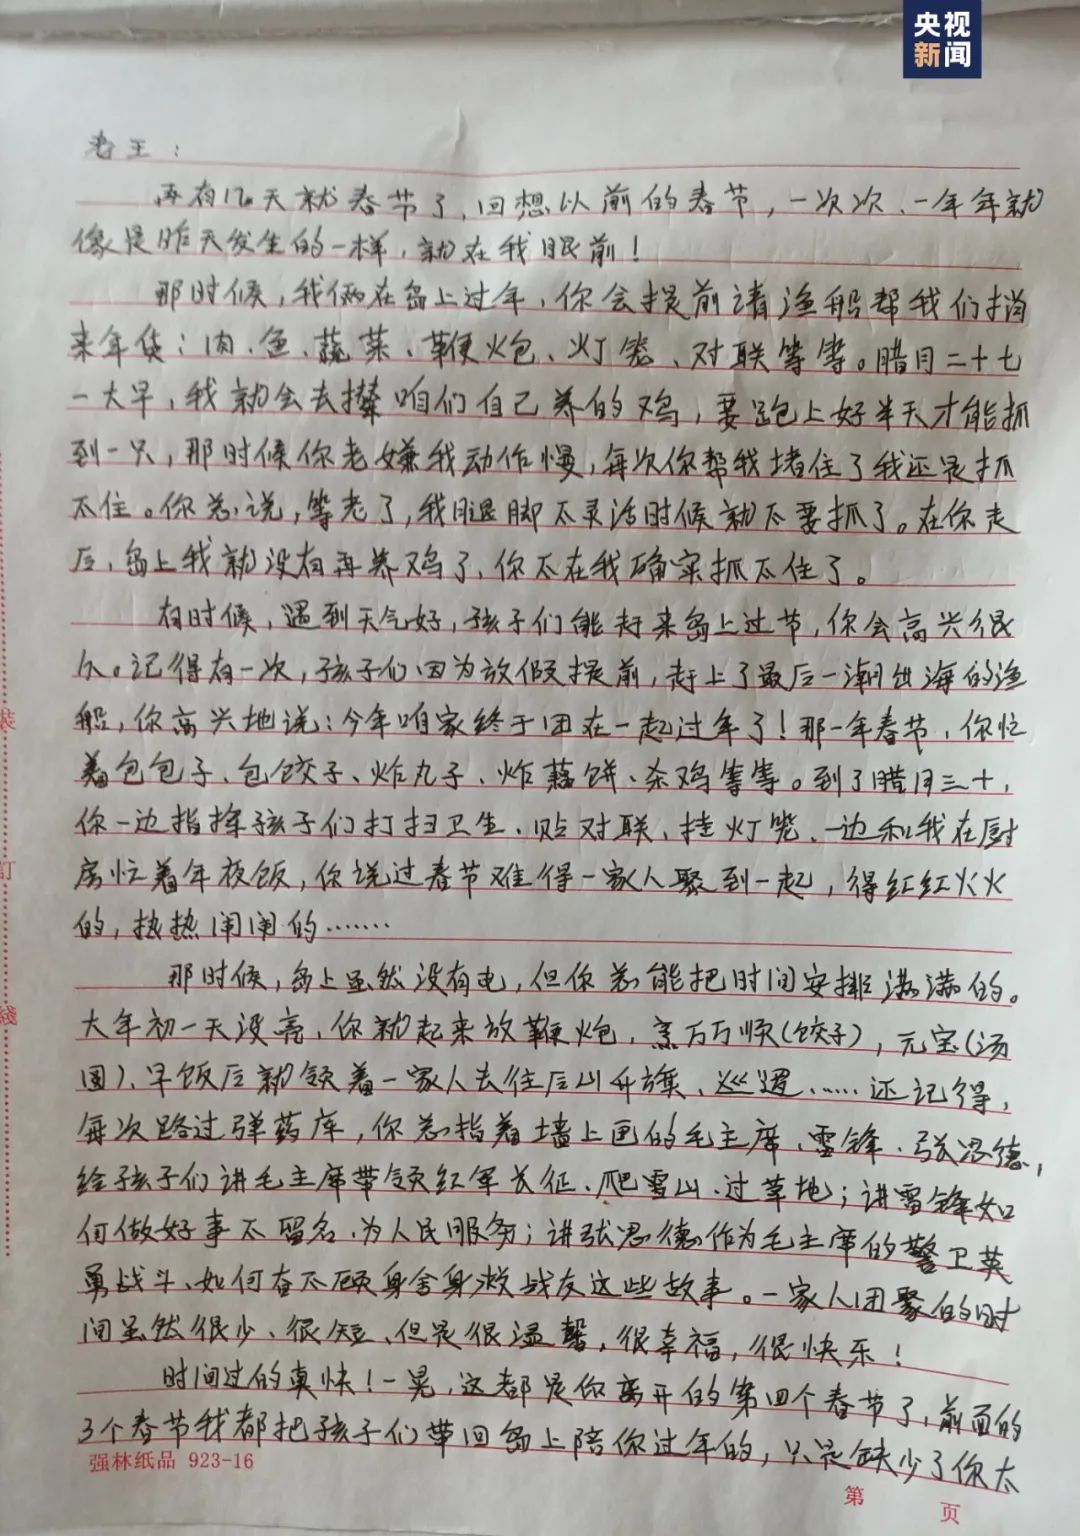 央视
新闻
老王：
再有几天就春节了，回想以前的春节，一次次、一年年就
像是昨天发生的一样，就在我眼前！
那时候，我俩在岛上过年，你会提前请渔船帮我们捎
来年货：肉、鱼、蔬菜、鞭炮、灯笼、对联等等。腊月二十七
一大早，我就会去撵咱们自己养的鸡，要跑上好半天才能抓
到一只，那时候你老嫌我动作慢，每次你帮我堵住了我还是抓
不住。你总说，等老了，我腿脚不灵活时候就不要抓了。在你走
后，岛上我就没有再养鸡了，你不在我确实抓不住了。
有时候，遇到天气好，孩子们能赶来岛上过节，你会高兴很
久。记得有一次，孩子们因为放假提前，赶上了最后一潮出海的渔
船，你高兴地说：今年咱家终于团在一起过年了！那一年春节，你忙
着包包子、包饺子、炸丸子、炸藕饼、杀鸡等等。到了腊月三十，
你一边指挥孩子们打扫卫生、贴对联、挂灯笼、一边和我在厨
房忙着年夜饭，你说过春节难得一家人聚到一起，得红红火火
的，热热闹闹的……
那时候，岛上虽然没有电，但你总能把时间安排满满的。
大年初一天没亮，你就起来放鞭炮，煮万万顺（饺子），元宝（汤
圆）、早饭后就领着一家人去往后山升旗、巡逻……还记得，
每次路过弹药库，你总指着墙上画的毛主席、雷锋、张思德，
给孩子们讲毛主席带领红军长征、爬雪山、过草地；讲雷锋如
何做好事不留名、为人民服务；讲张思德作为毛主席的警卫英
勇战斗、如何奋不顾身舍身救战友这些故事。一家人团聚的时
间虽然很少、很短、但是很温馨，很幸福，很快乐！
时间过的真快！一晃，这都是你离开的第四个春节了，前面的
3个春节我都把孩子们带回岛上陪你过年的，只是缺少了你太
强林纸品 923-16
第 页
装
訂
綫